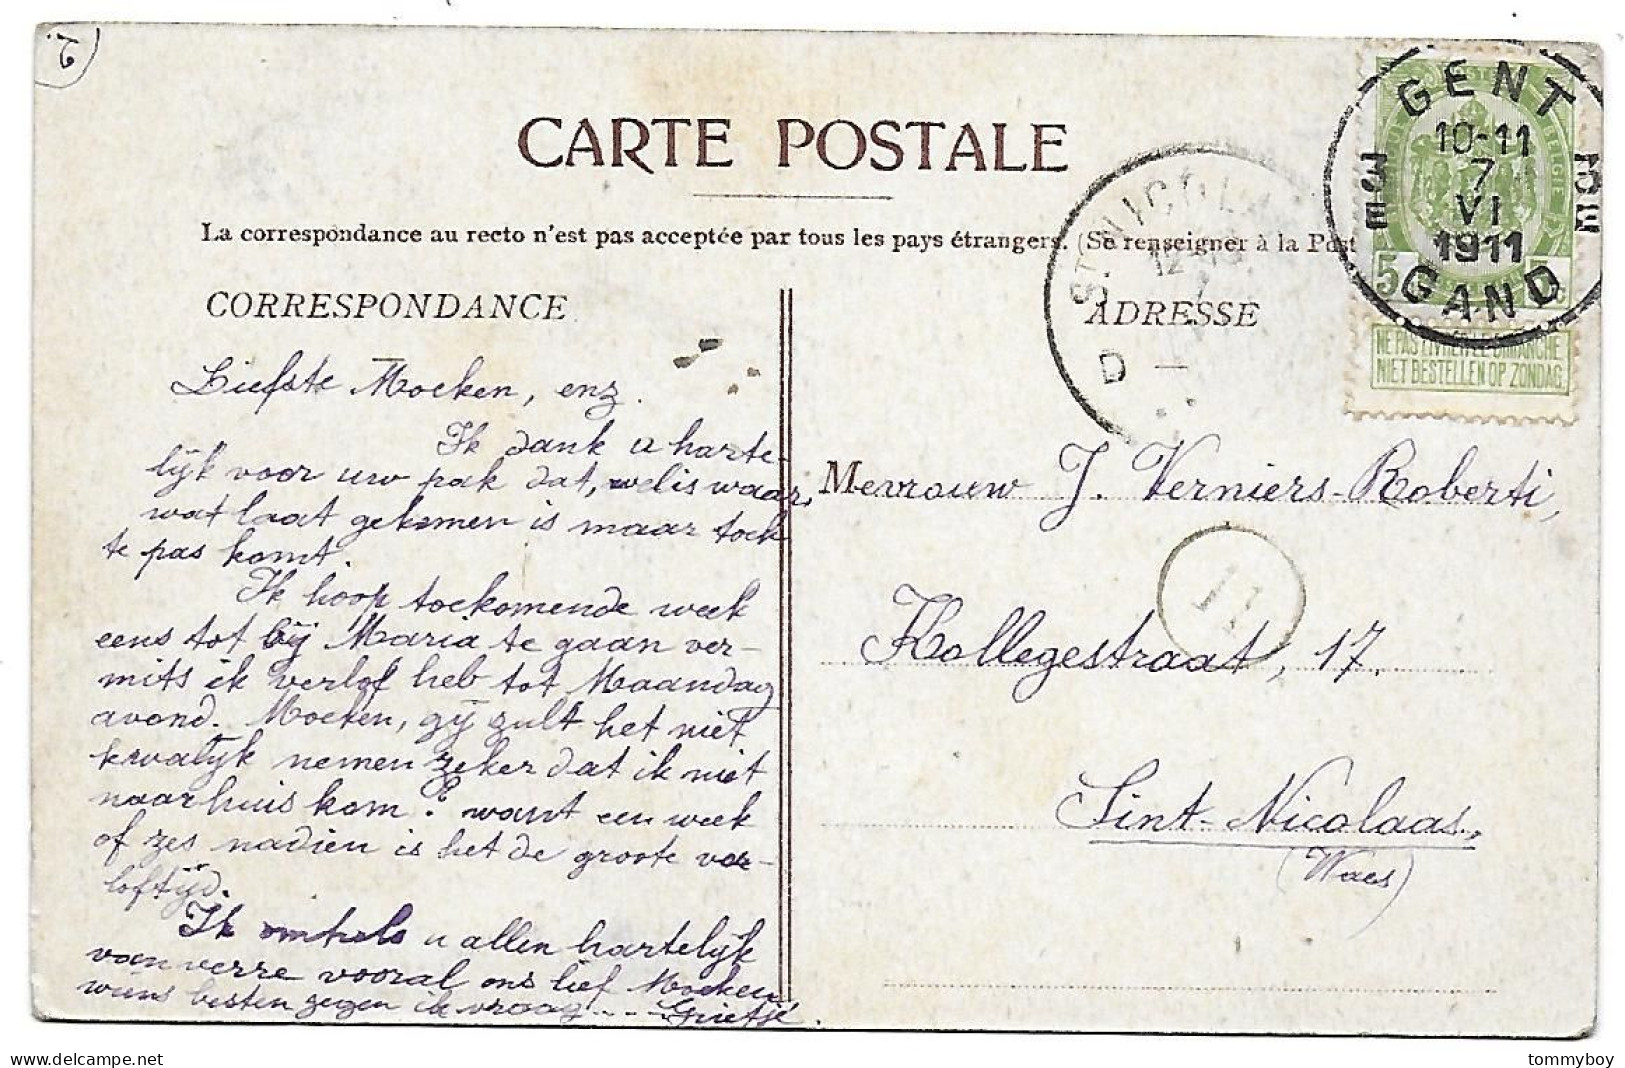 2.
CARTE POSTALE
La correspondance au recto n'est pas acceptée par tous les pays étrangers. (Se renseigner à la Post
CORRESPONDANCE
ADRESSE
GENT
10-11
7
VI
1911
GAND
ST NICOL
12-
D
5
NE PAS LIVRER LE DIMANCHE
NIET BESTELLEN OP ZONDAG
11
Liefste Moeken, enz.
Ik dank u harte-
lijk voor uw pak dat, welis waar,
wat laat gekomen is maar toch
te pas komt.
Ik hoop toekomende week
eens tot bij Maria te gaan ver-
mits ik verlof heb tot Maandag
avond. Moeken, gij zult het niet
kwalijk nemen zeker dat ik niet
naar huis kom? want een week
of zes nadien is het de groote ver-
loftijd.
Ik omhels u allen hartelijk
van verre vooral ons lief Moeken
wiens besten zegen ik vraag... Grietje.
Mevrouw J. Verniers-Roberti,
Kollegestraat, 17.
Sint-Nicolaas,
(Waes)
tommyboy